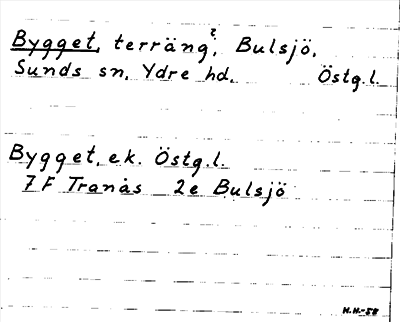 Bygget, terräng?, Bulsjö,
Sunds sn, Ydre hd, Östg.l.
Bygget, ek. Östg.l.
7 F Tranås 2e Bulsjö
H.H.-58